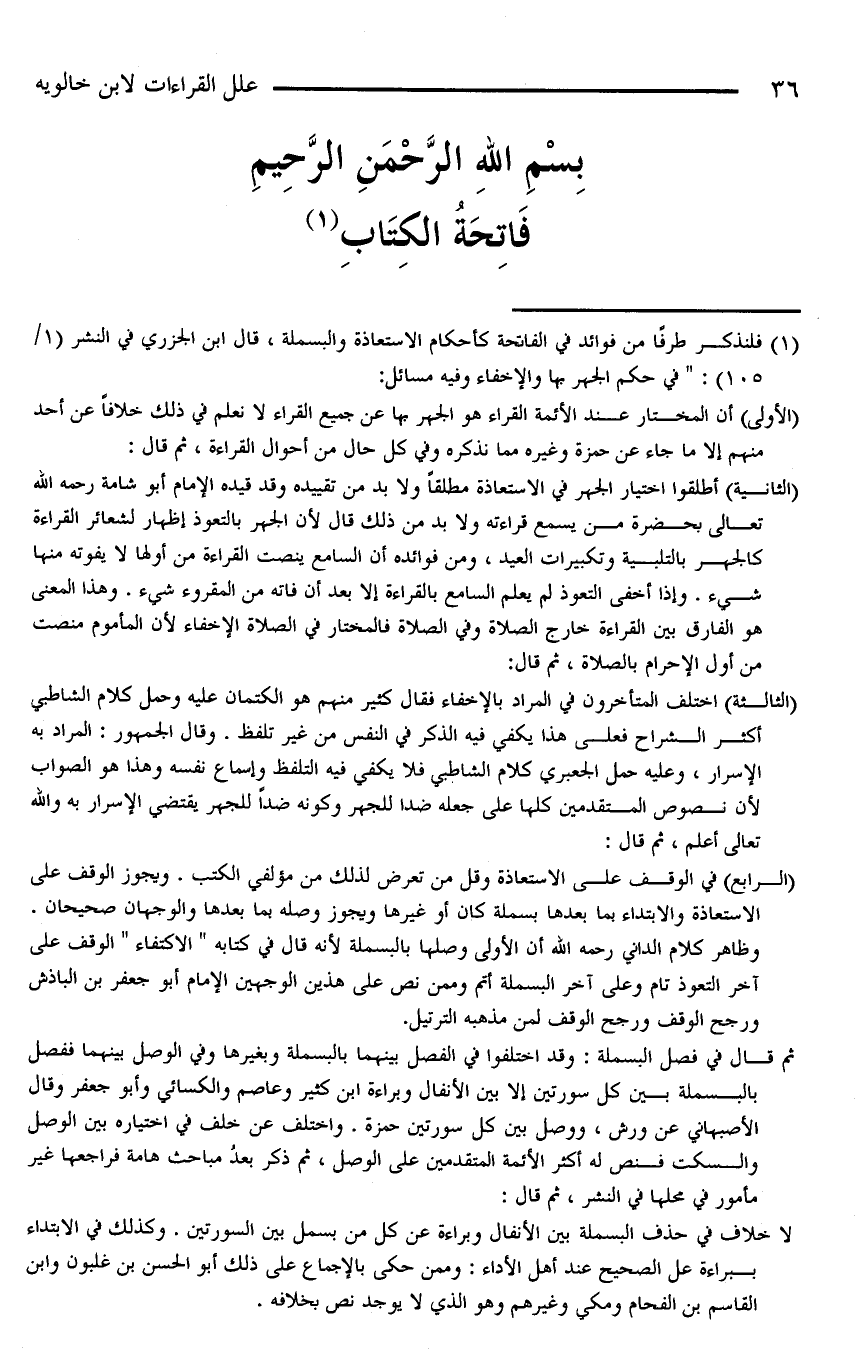 ٣٦ علل القراءات لابن خالويه
بِسْمِ اللهِ الرَّحْمَنِ الرَّحِيمِ
فَاتِحَةُ الكِتَابِ(١)
(١) فلنذكر طرفًا من فوائد في الفاتحة كأحكام الاستعاذة والبسملة ، قال ابن الجزري في النشر (١/
١٠٥) : " في حكم الجهر بها والإخفاء وفيه مسائل:
(الأولى) أن المختار عند الأئمة القراء هو الجهر بها عن جميع القراء لا نعلم في ذلك خلافاً عن أحد
منهم إلا ما جاء عن حمزة وغيره مما نذكره وفي كل حال من أحوال القراءة ، ثم قال :
(الثانية) أطلقوا اختيار الجهر في الاستعاذة مطلقاً ولا بد من تقييده وقد قيده الإمام أبو شامة رحمه الله
تعالى بحضرة من يسمع قراءته ولا بد من ذلك قال لأن الجهر بالتعوذ إظهار لشعائر القراءة
كالجهر بالتلبية وتكبيرات العيد ، ومن فوائده أن السامع ينصت القراءة من أولها لا يفوته منها
شيء . وإذا أخفى التعوذ لم يعلم السامع بالقراءة إلا بعد أن فاته من المقروء شيء . وهذا المعنى
هو الفارق بين القراءة خارج الصلاة وفي الصلاة فالمختار في الصلاة الإخفاء لأن المأموم منصت
من أول الإحرام بالصلاة ، ثم قال:
(الثالثة) اختلف المتأخرون في المراد بالإخفاء فقال كثير منهم هو الكتمان عليه وحمل كلام الشاطبي
أكثر الشراح فعلى هذا يكفي فيه الذكر في النفس من غير تلفظ . وقال الجمهور : المراد به
الإسرار ، وعليه حمل الجعبري كلام الشاطبي فلا يكفي فيه التلفظ وإسماع نفسه وهذا هو الصواب
لأن نصوص المتقدمين كلها على جعله ضدا للجهر وكونه ضداً للجهر يقتضي الإسرار به والله
تعالى أعلم ، ثم قال :
(الرابع) في الوقف على الاستعاذة وقل من تعرض لذلك من مؤلفي الكتب . ويجوز الوقف على
الاستعاذة والابتداء بما بعدها بسملة كان أو غيرها ويجوز وصله بما بعدها والوجهان صحيحان .
وظاهر كلام الداني رحمه الله أن الأولى وصلها بالبسملة لأنه قال في كتابه " الاكتفاء " الوقف على
آخر التعوذ تام وعلى آخر البسملة أتم وممن نص على هذين الوجهين الإمام أبو جعفر بن الباذش
ورجح الوقف ورجح الوقف لمن مذهبه الترتيل.
ثم قال في فصل البسملة : وقد اختلفوا في الفصل بينهما بالبسملة وبغيرها وفي الوصل بينهما ففصل
بالبسملة بين كل سورتين إلا بين الأنفال وبراءة ابن كثير وعاصم والكسائي وأبو جعفر وقال
الأصبهاني عن ورش ، ووصل بين كل سورتين حمزة . واختلف عن خلف في اختياره بين الوصل
والسكت فنص له أكثر الأئمة المتقدمين على الوصل ، ثم ذكر بعدُ مباحث هامة فراجعها غير
مأمور في محلها في النشر ، ثم قال :
لا خلاف في حذف البسملة بين الأنفال وبراءة عن كل من بسمل بين السورتين . وكذلك في الابتداء
ببراءة عل الصحيح عند أهل الأداء : وممن حكى بالإجماع على ذلك أبو الحسن بن غلبون وابن
القاسم بن الفحام ومكي وغيرهم وهو الذي لا يوجد نص بخلافه .